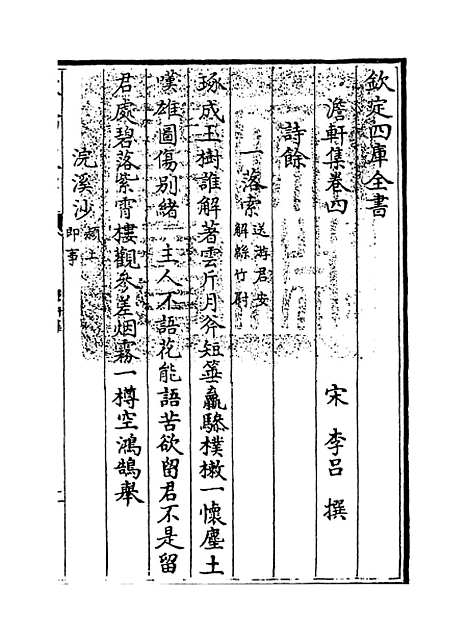 欽定四庫全書
澹軒集卷四
宋 李呂 撰
詩餘
一落索 送游君安解縣竹尉
琢成玉樹誰解著雲斤月斧短蓑羸驂樸樕一懷塵土
嘆雄圖傷別緒 主人不語花能語苦欲留君不是留
君處碧落紫霄樓觀參差烟霧一樽空鴻鵠舉
浣溪沙 即事